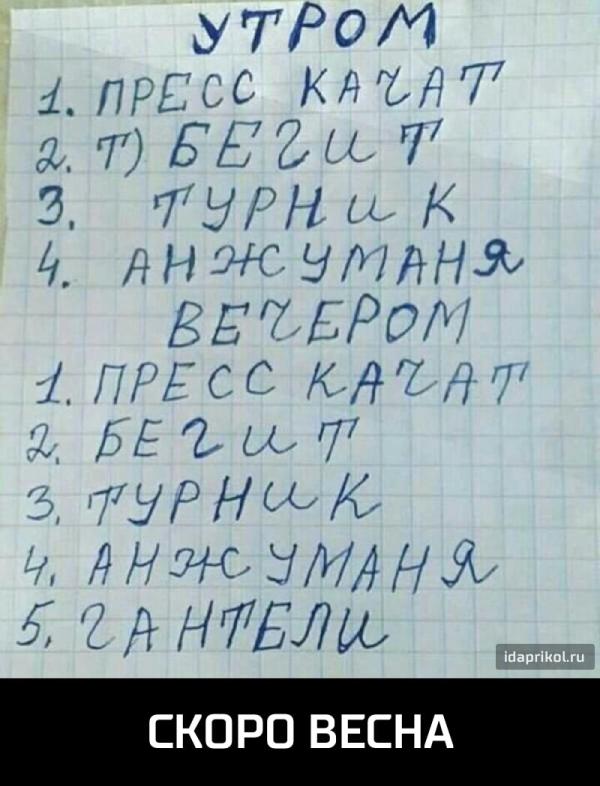 УТРОМ
1. ПРЕСС КАЧАТ
2. Т) БЕГИТ
3. ТУРНИК
4. АНЖУМАНЯ
ВЕЧЕРОМ
1. ПРЕСС КАЧАТ
2. БЕГИТ
3. ТУРНИК
4. АНЖУМАНЯ
5. ГАНТЕЛИ
idaprikol.ru
СКОРО ВЕСНА